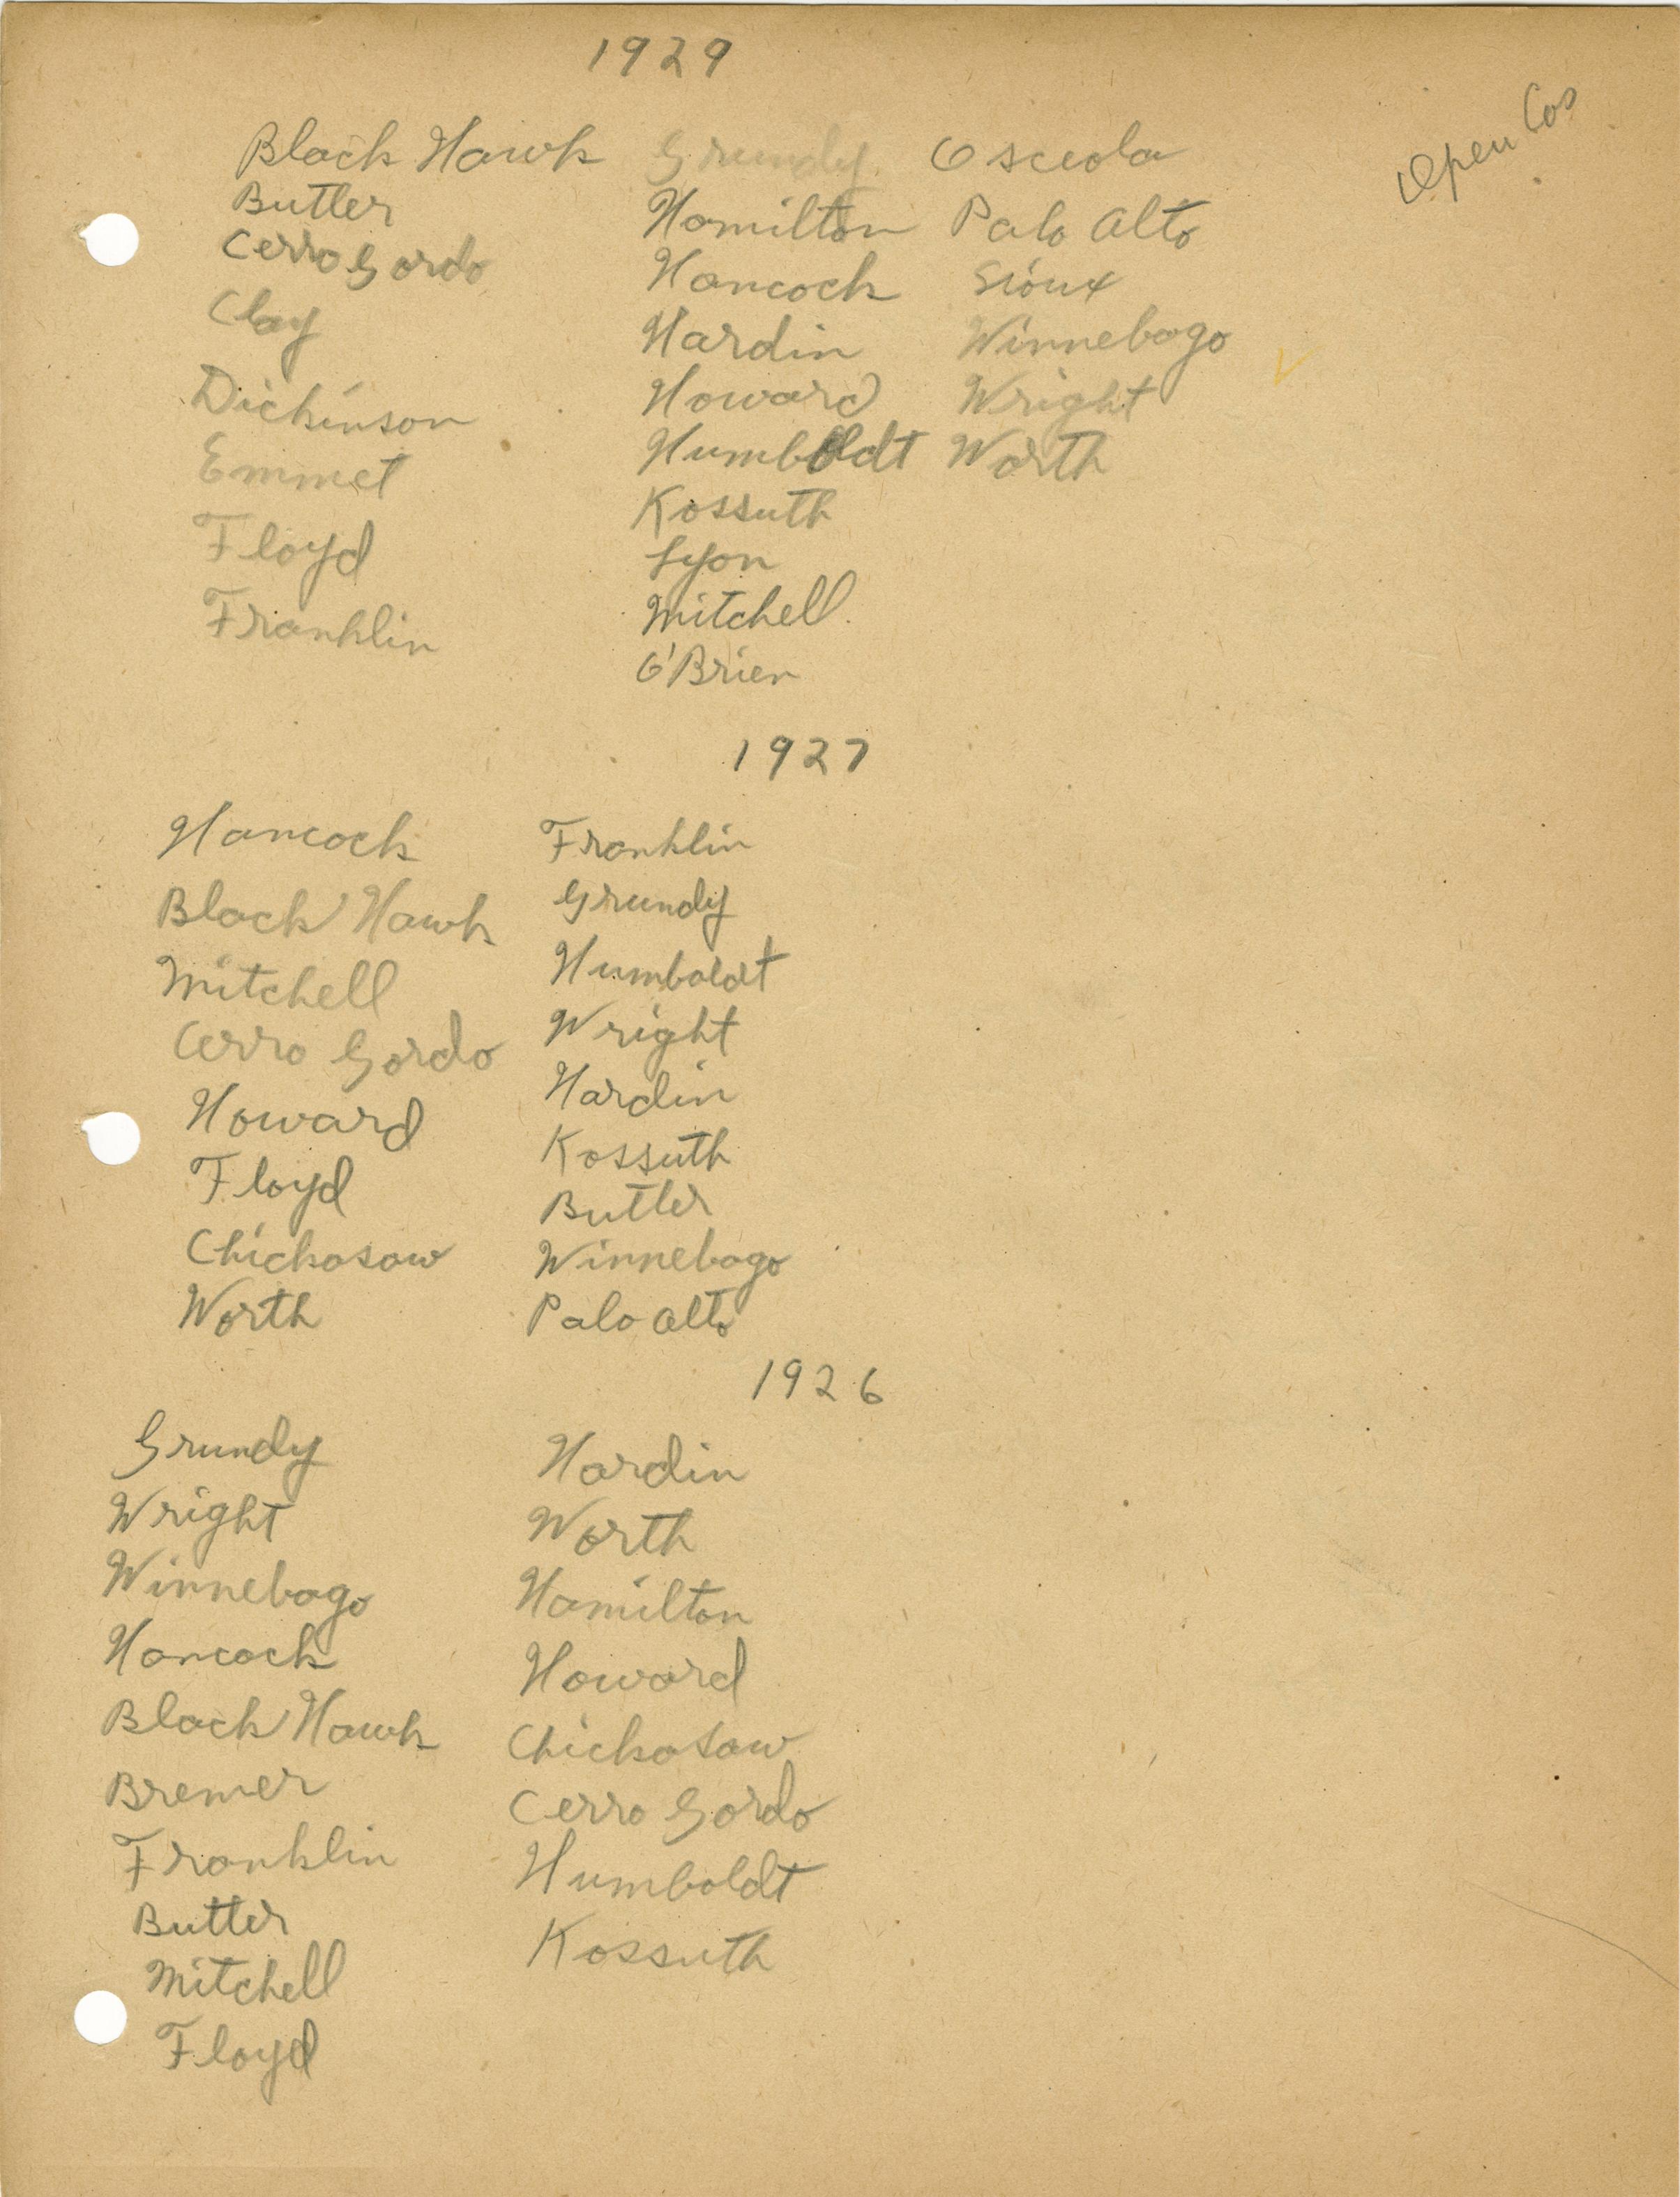 1929
Open Cos
Black Hawk Grundy Osceola
Butler Hamilton Palo Alto
Cerro Gordo Hancock Sioux
Clay Hardin Winnebago
Dickinson Howard Wright
Emmet Humboldt Worth
Floyd Kossuth
Franklin Lyon
Mitchell
O'Brien
1927
Hancock Franklin
Black Hawk Grundy
Mitchell Humboldt
Cerro Gordo Wright
Howard Hardin
Floyd Kossuth
Chickasaw Butler
Worth Winnebago
Palo Alto
1926
Grundy Hardin
Wright Worth
Winnebago Hamilton
Hancock Howard
Black Hawk Chickasaw
Bremer Cerro Gordo
Franklin Humboldt
Butler Kossuth
Mitchell
Floyd